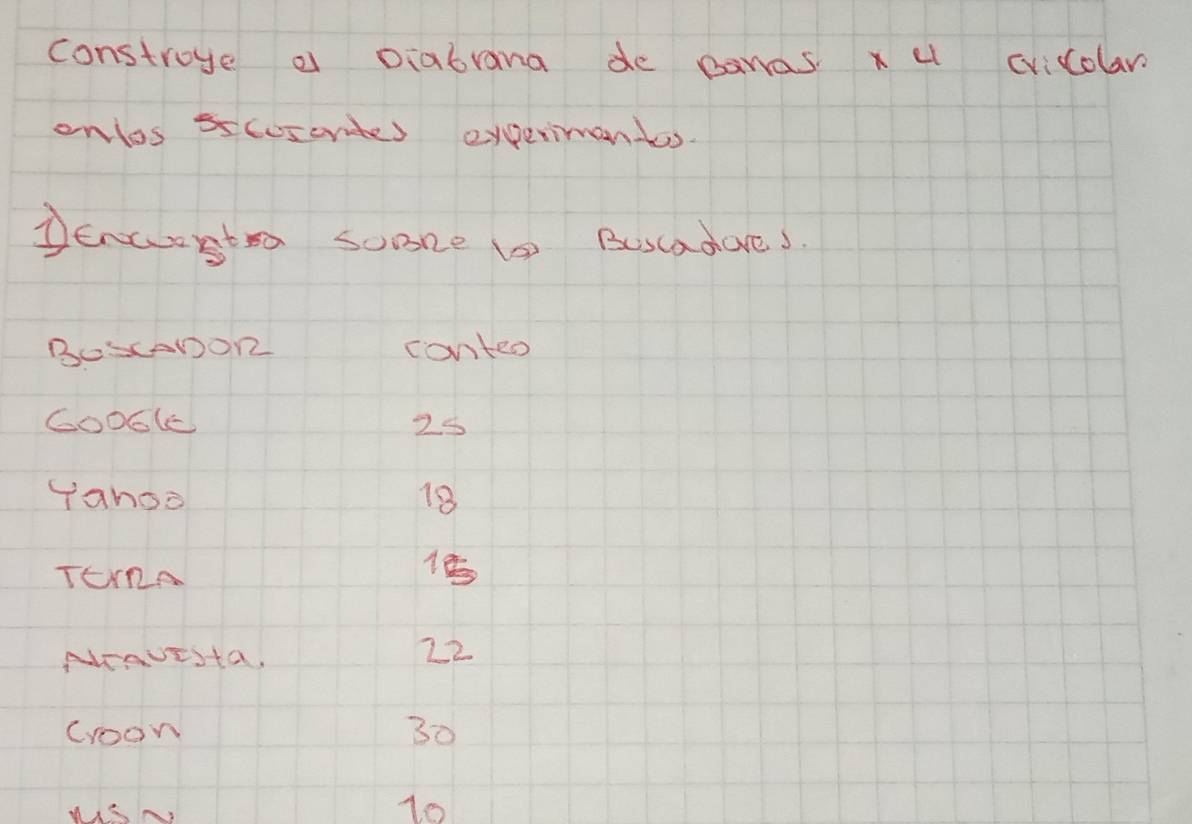 Construye el Diagrama de Barras y el circular
en los siguientes experimentos.
1) Encuesta sobre los Buscadores.
Buscador conteo
Google 25
Yahoo 18
Terra 15
Altavista. 22
Croon 30
MSN 10